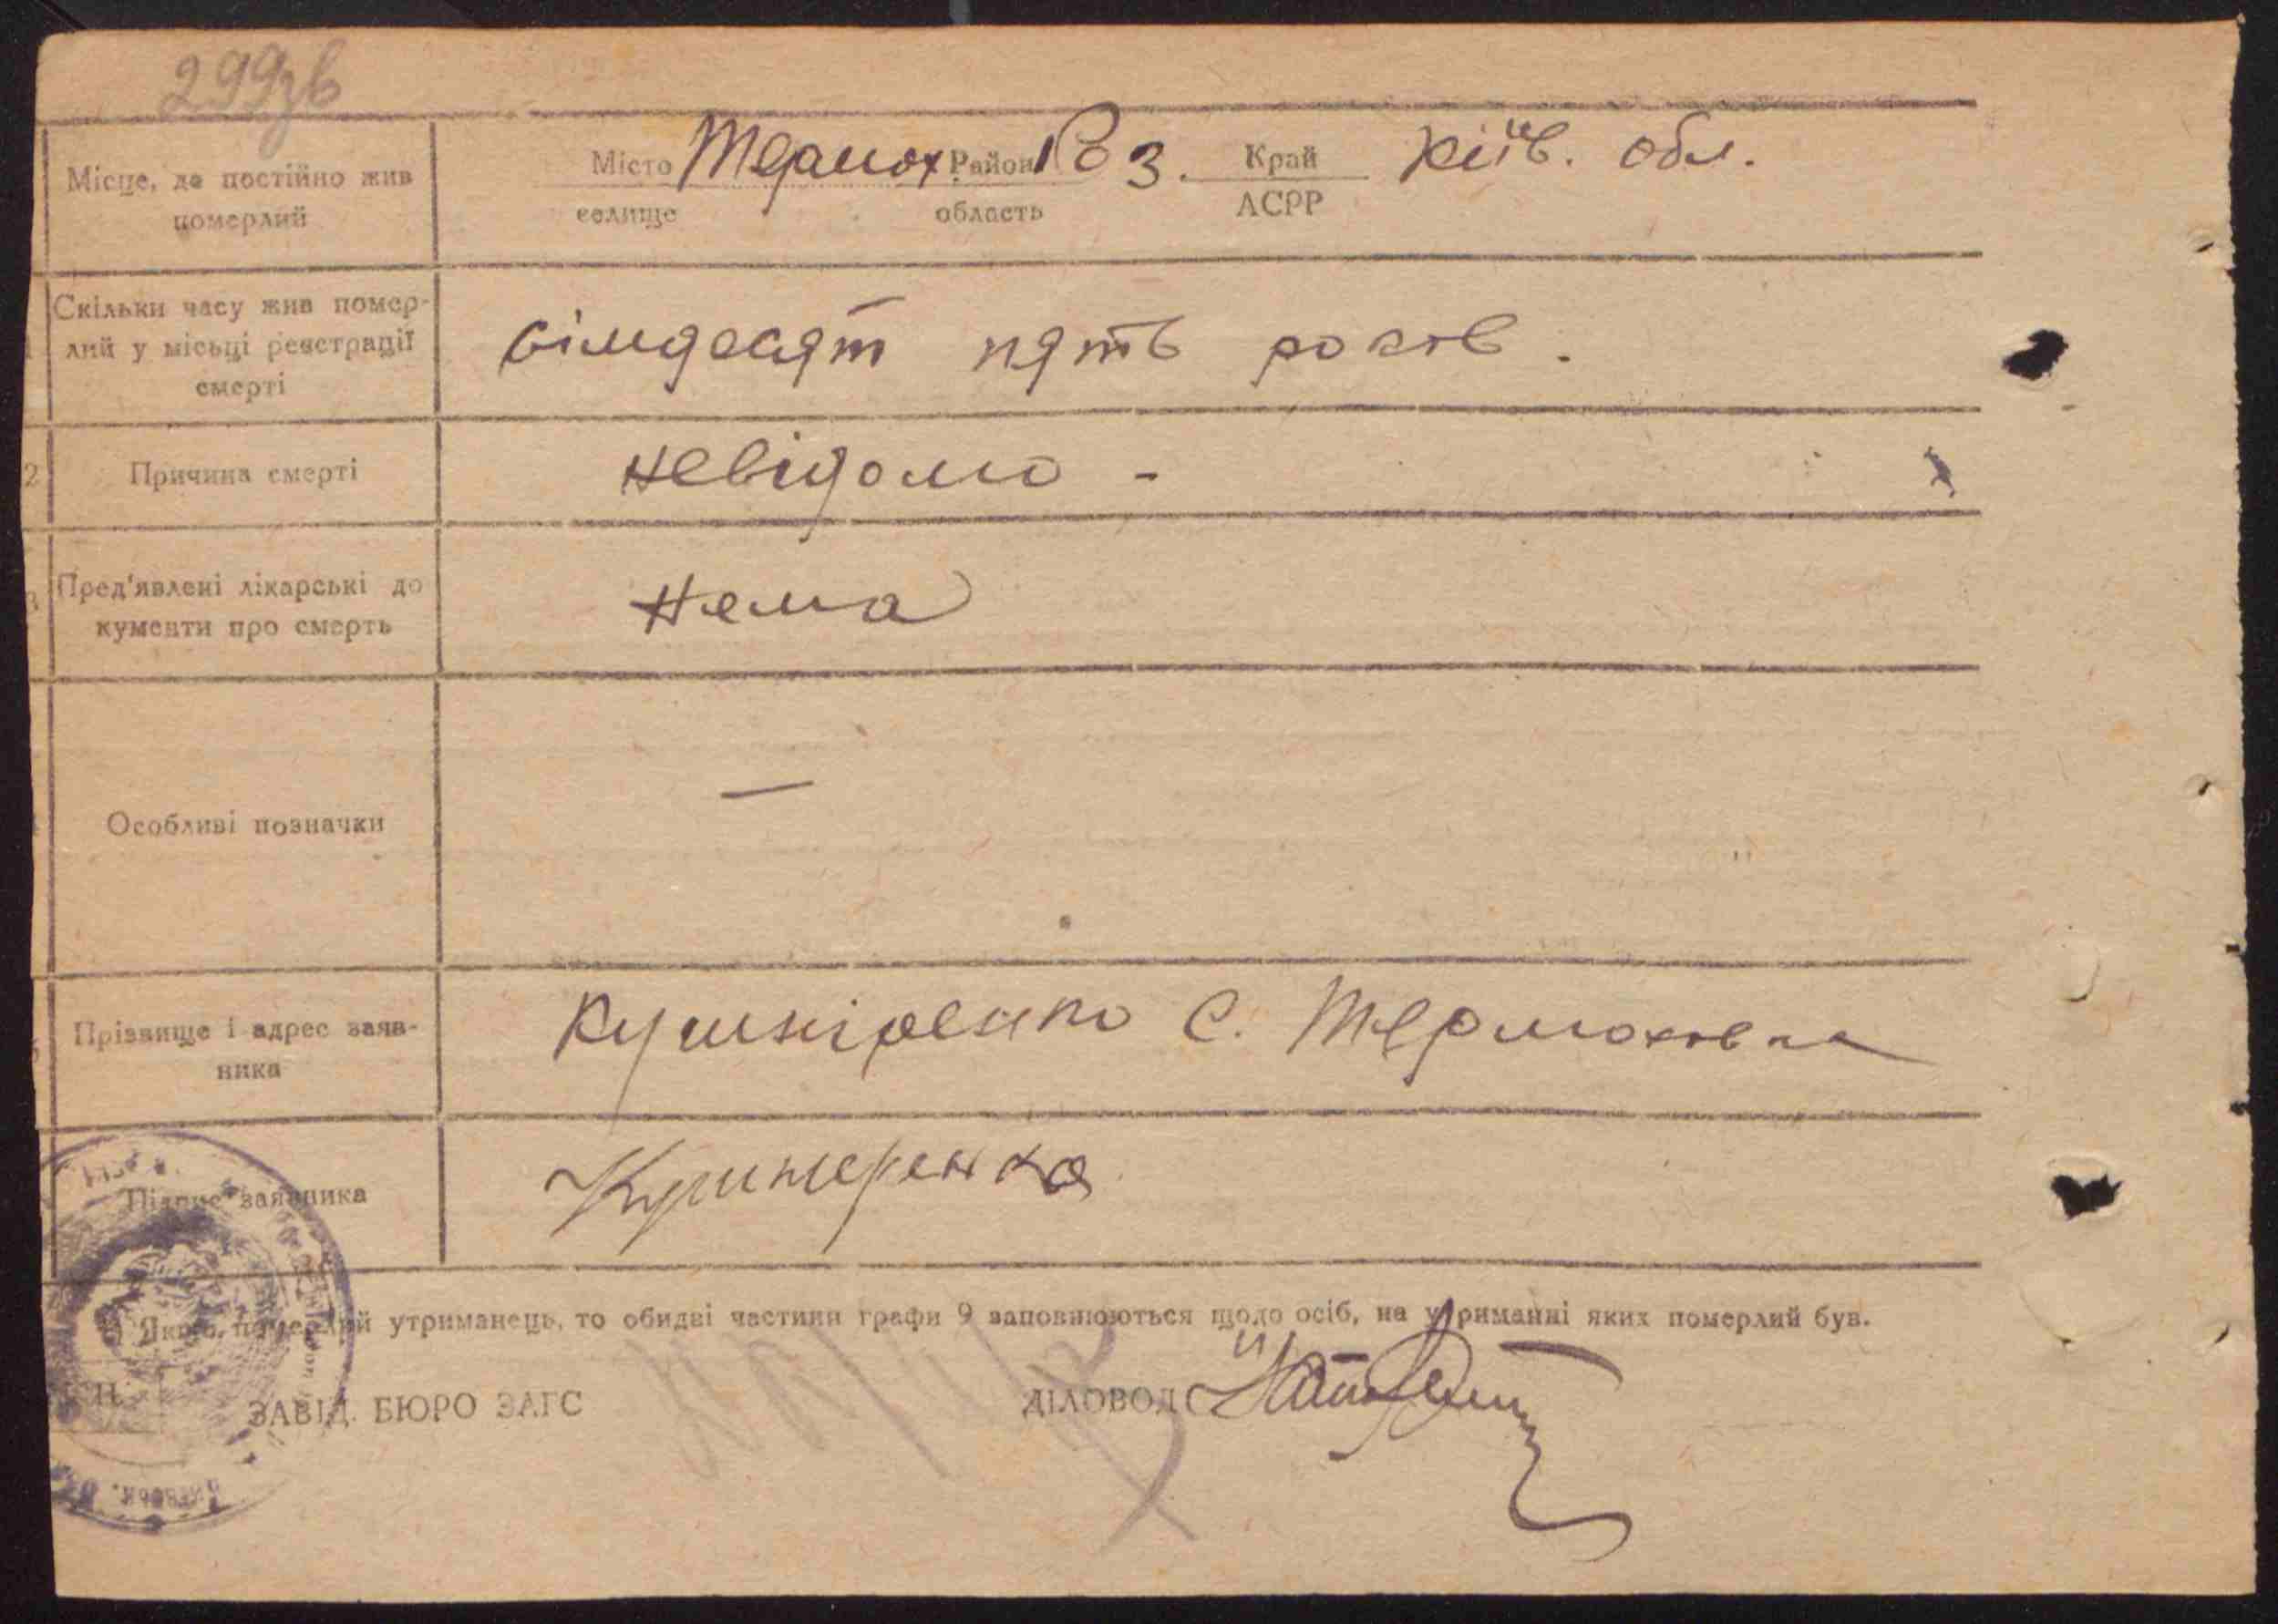 299зв
Місце, де постійно жив
померлий
Місто Термох Район Роз. Край Київ. обл.
селище область АСРР
Скільки часу жив помер-
лий у місьці реєстрації
смерті
сімдесят пять років.
2 Причина смерті невідомо -
3 Пред'явлені лікарські до
кументи про смерть
Нема
Особливі позначки —
Прізвище і адрес заяв-
ника
Кушніренко С. Термоховка
Підпис заявника Кушнеренко
Якщо померлий утриманець, то обидві частини графи 9 заповнюються щодо осіб, на утриманні яких померлий був.
ЗАВІД. БЮРО ЗАГС ДІЛОВОД